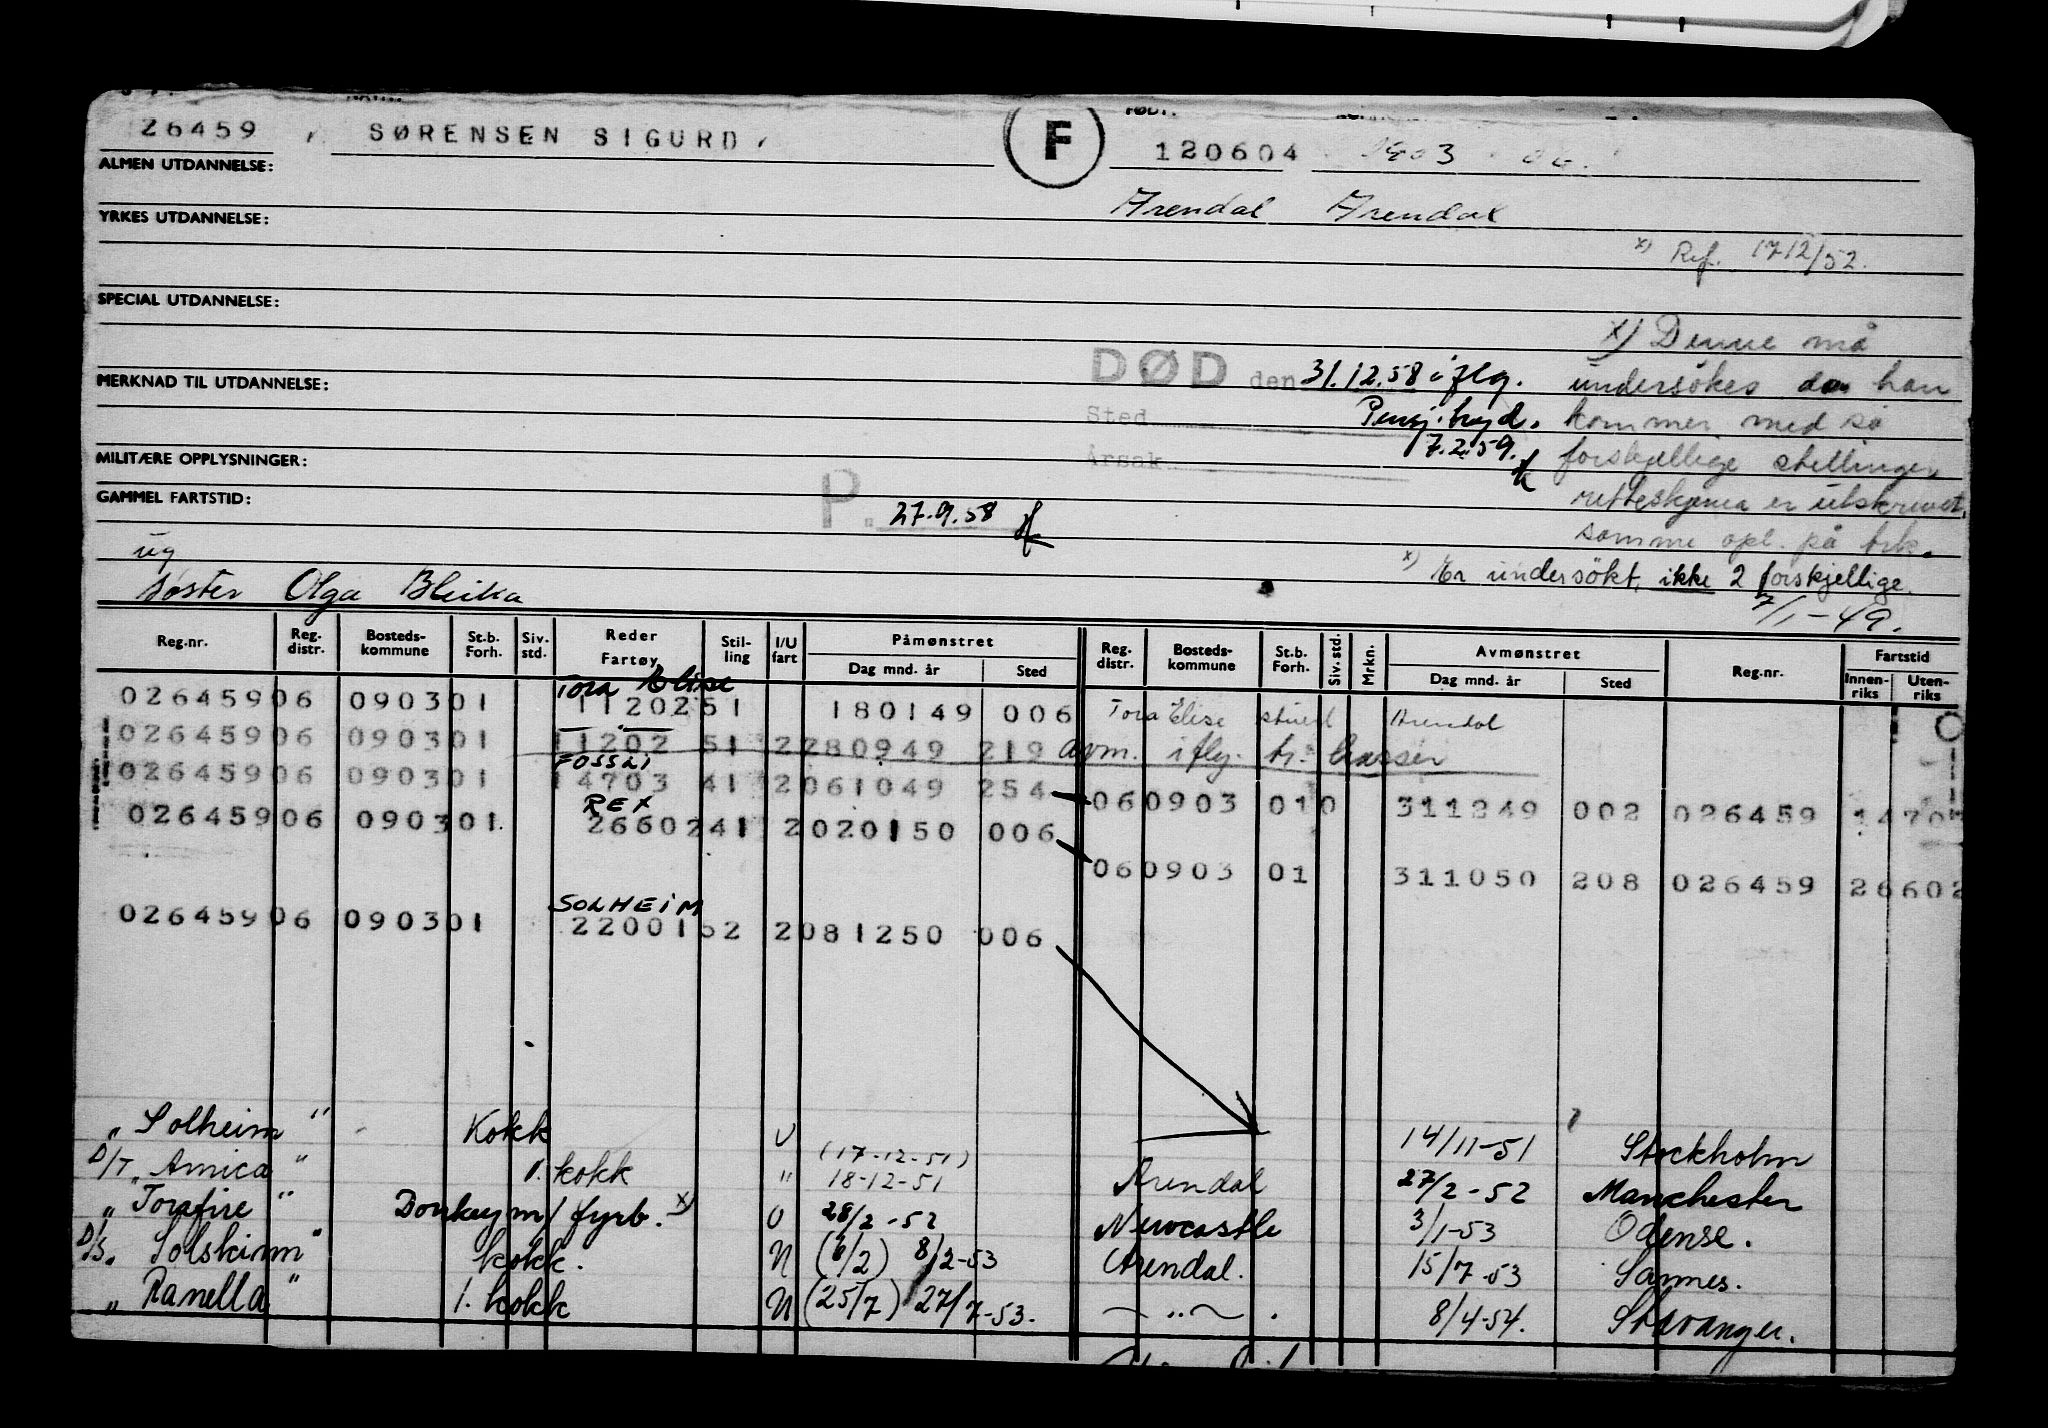 26459 SØRENSEN SIGURD F FØDT: 120604
ALMEN UTDANNELSE:
YRKES UTDANNELSE: Arendal Arendal
x) Ref. 17 12/52.
SPECIAL UTDANNELSE:
x) Denne må
DØD den 31.12.58 iflg. undersökes da han
MERKNAD TIL UTDANNELSE:
Sted Pensj.tryd. kommer med så
7.2.59. forskjellige stillinger,
Årsak
MILITÆRE OPPLYSNINGER:
retteskjema er utskrevet,
GAMMEL FARTSTID: P. 27.9.58
samme opl. på
ug x) Er undersökt, ikke 2 forskjellige.
søster Olga 7/1-49.
Reg.nr. Reg. distr. Bosteds-kommune St.b. Forh. Siv. std. Reder Fartøy Stil-ling I/U fart Påmønstret Dag mnd. år Sted Reg. distr. Bosteds-kommune St.b. Forh. Siv. std. Mrkn. Avmønstret Dag mnd. år Sted Reg.nr. Fartstid Innen-riks Uten-riks
Tora Elise
026459 06 0903 01 11202 51 180149 006 Tora Elise Arendal
026459 06 0903 01 11202 51 2 280949 219 avm. iflg.
FOSSLI
026459 06 0903 01 14703 41 2 061049 254 06 0903 01 0 311249 002 026459 1470
REX
026459 06 0903 01 26602 41 2 020150 006
06 0903 01 311050 208 026459 26602
SOLHEIM
026459 06 0903 01 22001 52 2 081250 006
" Solheim " Kokk U 14/11-51 Stockholm
(17-12-51)
D/T " Arnica " 1. kokk " 18-12-51 Arendal 27/2-52 Manchester
" Torafire " Donkeym / fyrb. x) U 28/2-52 Newcastle 3/1-53 Odense.
D/S. Solskinn " kokk. N (6/2) 8/2-53 Arendal. 15/7-53 Sannes.
" Ranella " 1. kokk N (25/7) 27/7-53. — " — . 8/4-54. Stavanger.